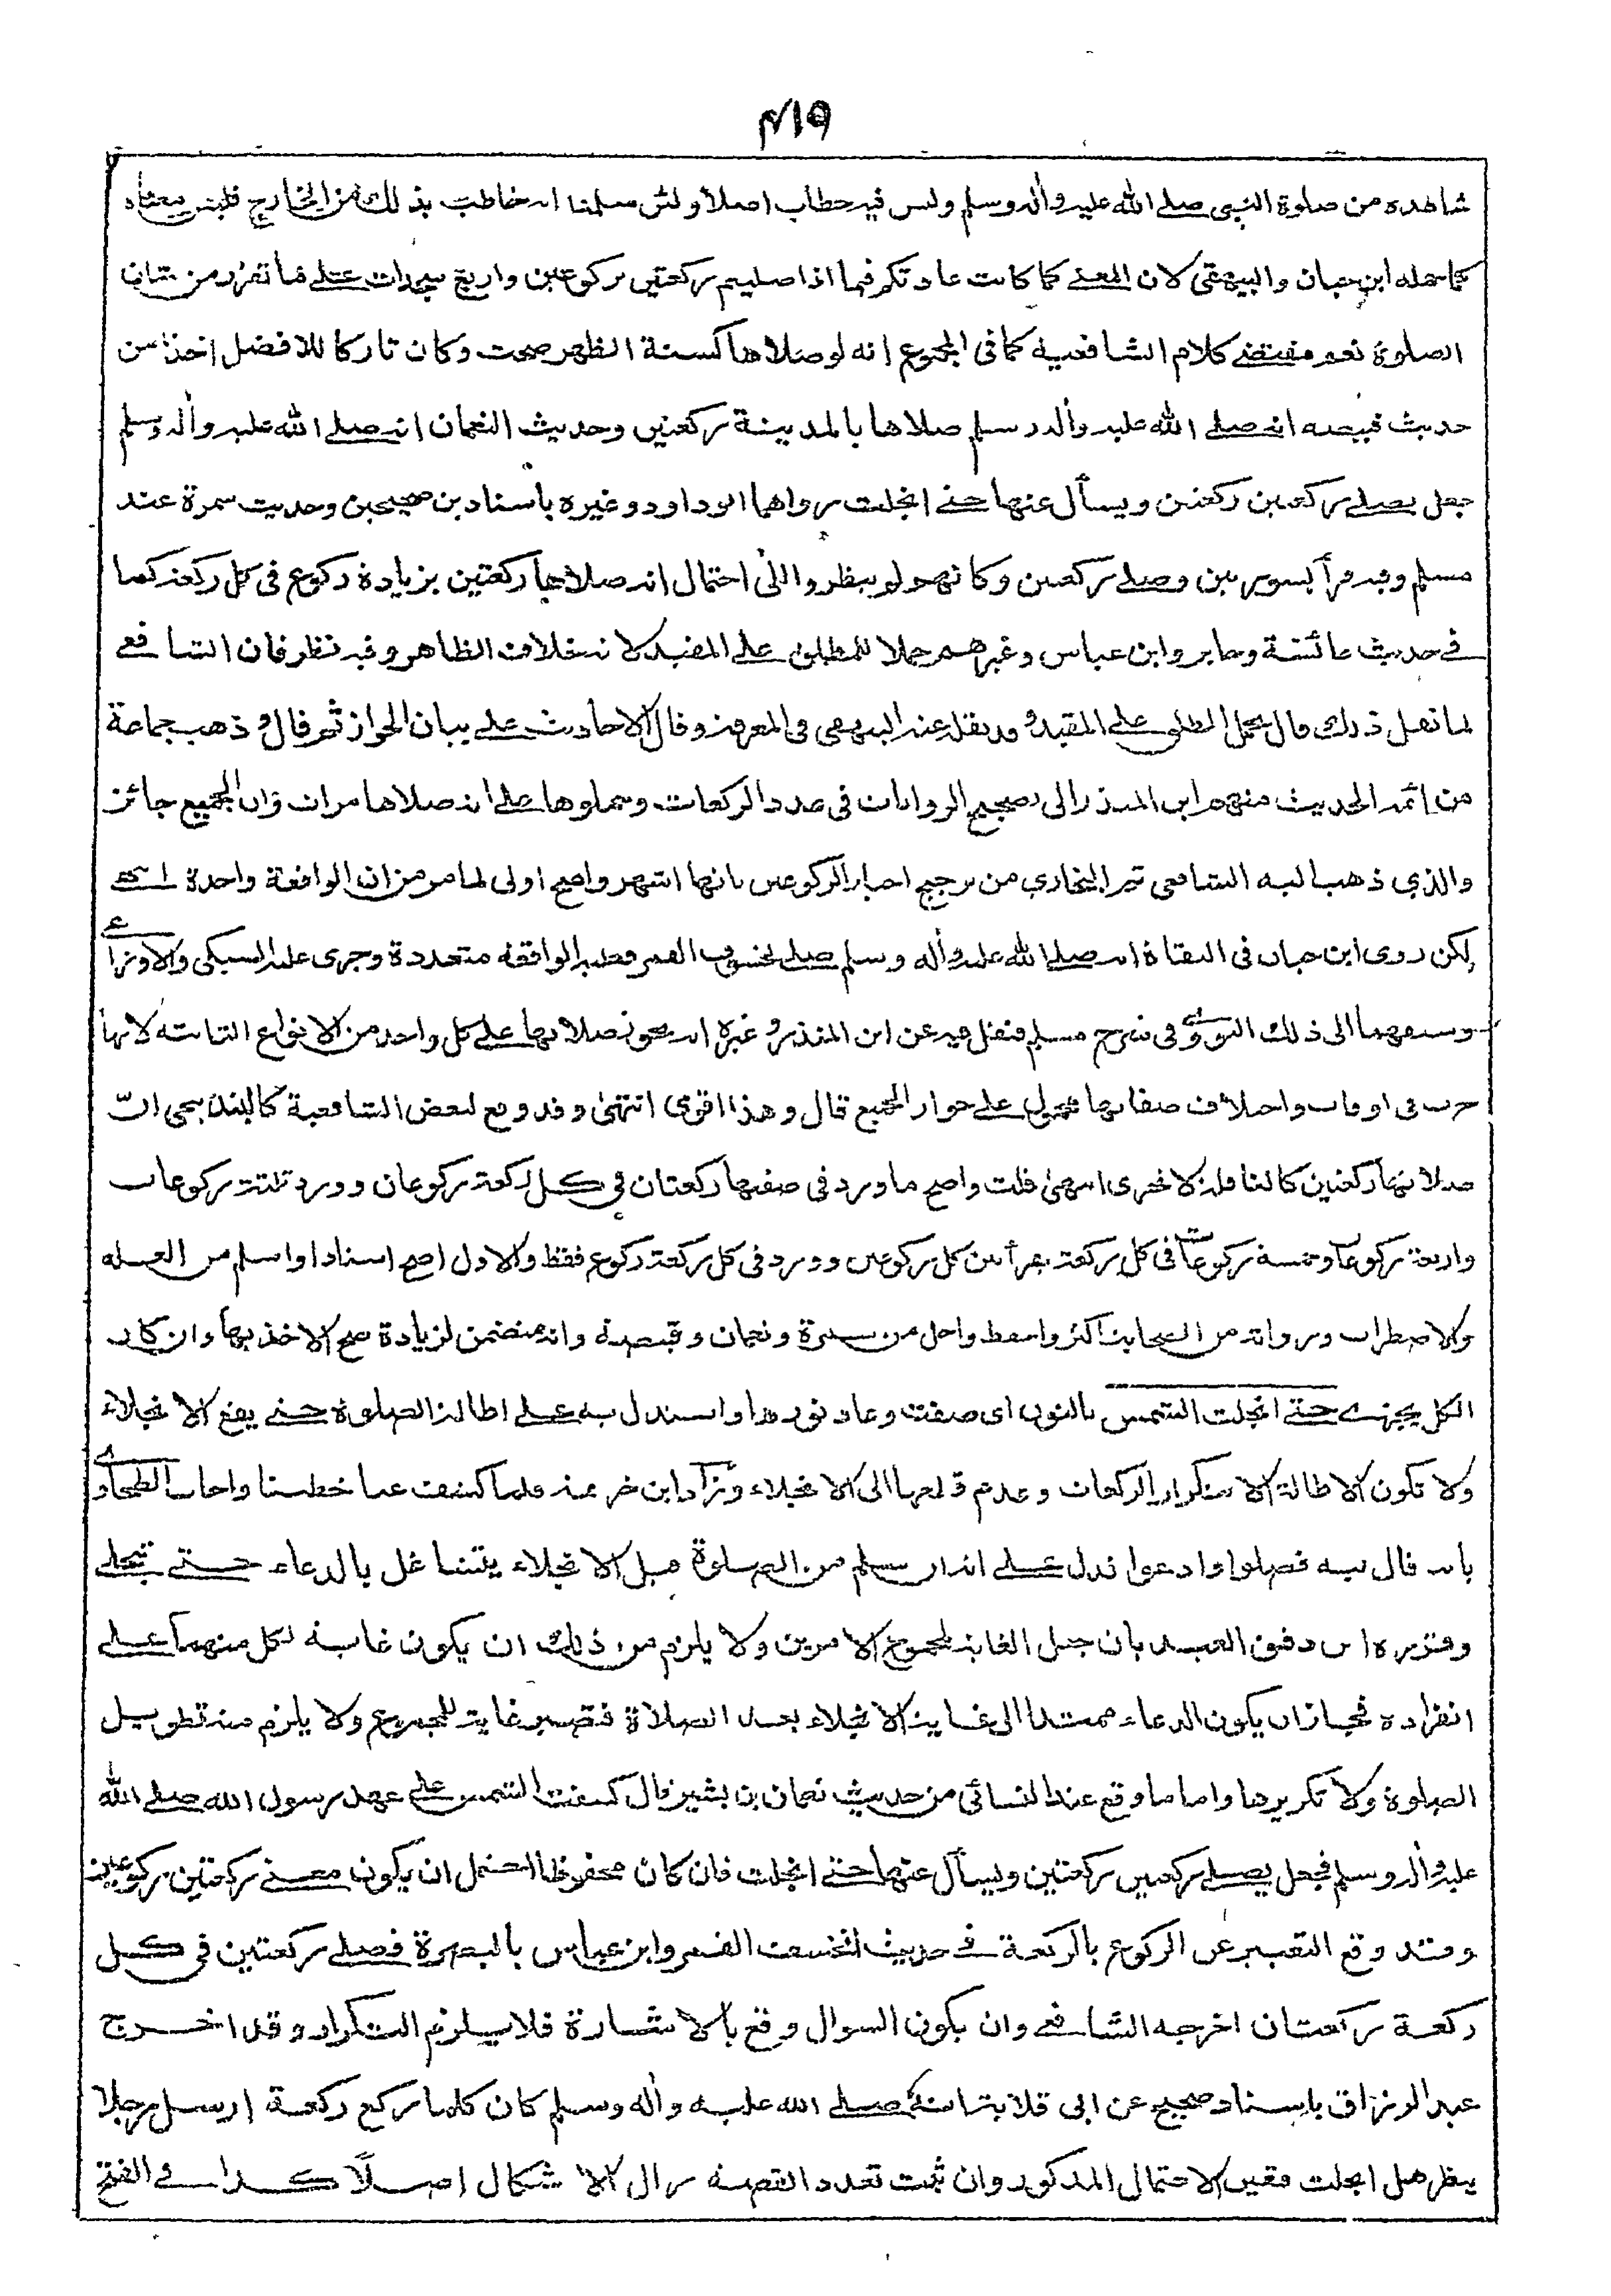 ٤١٩
شاهده من صلوة النبى صلے الله عليه وأله وسلم وليس فيه خطاب اصلا ولئن سلمنا انه خاطب بذلك من الخارج فليس معناه
كما حمله ابن حبان والبيهقى لان المعنے كما كانت عادتكم فيما اذا صليتم ركعتين بركوعين واربع سجدات علے ما تقرر من شان
الصلوة نعم مقتضے كلام الشافعية كما فى المجموع انه لو صلاها كسنة الظهر صحت وكان تاركا للافضل اخذا من
حديث قبيصه انه صلے الله عليه وأله وسلم صلاها بالمدينة ركعتين وحديث النعمان انه صلے الله عليه وأله وسلم
جعل يصلے ركعتين ركعتين ويسأل عنها حتے انجلت رواهما ابوداود وغيره باسنادين صحيحين وحديث سمرة عند
مسلم وفيه قرأ بسورتين وصلے ركعتين وكانهم لم ينظروا الى احتمال انه صلاها ركعتين بزيادة ركوع فى كل ركعة كما
فے حديث عائشة وجابر وابن عباس وغيرهم حملا للمطلق علے المقيد لانه خلاف الظاهر وفيه نظر فان الشافعے
لما نقل ذلك قال يحمل المطلق علے المقيد وقد نقله عنه البيهقى فى المعرفة وقال الاحاديث علے بيان الجواز ثم قال وذهب جماعة
من ائمة الحديث منهم ابن المنذر الى تصحيح الروايات فى عدد الركعات وحملوها علے انه صلاها مرات وان الجميع جائز
والذي ذهب اليه الشافعى ثم البخاري من ترجيح اخبار الركوعين بانها اشهر واصح اولى لما مر من ان الواقعة واحدة انتهے
لكن روى ابن حبان فى الثقاة انه صلے الله عليه وأله وسلم صلے لخسوف القمر فعليه الواقعة متعددة وجرى عليه السبكى والاوزاعے
وسبقهما الى ذلك النووى فى شرح مسلم فنقل فيه عن ابن المنذر وغيره انه يجوز صلاتها علے كل واحد من الانواع الثابتة لانها
جرت فى اوقات واختلاف صفاتها محمول علے جواز الجميع قال وهذا اقوى انتهى وقد وقع لبعض الشافعية كالبندنيجى ان
صلاتها ركعتين كالنافلة لا تجزى انتهى قلت واصح ما ورد فى صفتها ركعتان فى كل ركعة ركوعان وورد ثلثة ركوعات
واربعة ركوعات وخمسة ركوعات فى كل ركعة يقرأ بين كل ركوعين وورد فى كل ركعة ركوع فقط والاول اصح اسنادا واسلم من العلة
والاضطراب ورواته من الصحابة اكثر واحفظ واجل من سمرة ونعمان وقبيصة وانه متضمن لزيادة صح الاخذ بها وان كان
الكل يجزے حتے انجلت الشمس بالنون اى صفت وعاد نورها واستدل به علے اطالة الصلوة حتے يقع الانجلاء
ولا تكون الاطالة الا بتكرار الركعات وعدم قطعها الى الانجلاء وزاد ابن خزيمة فلما كشفت عنا خطبنا واجاب الطحاوے
بانه قال فيه فصلوا وادعوا فدل علے انه ان سلم من الصلوة قبل الانجلاء يتشاغل بالدعاء حتے تنجلے
وقرره ابن دقيق العيد بان جعل الغاية لمجموع الامرين ولا يلزم من ذلك ان يكون غاية لكل منهما علے
انفراده فجاز ان يكون الدعاء ممتدا الى غاية الانجلاء بعد الصلاة فتصير غاية للمجموع ولا يلزم منه تطويل
الصلوة ولا تكريرها واما ما وقع عند النسائى من حديث نعمان بن بشير قال كسفت الشمس علے عهد رسول الله صلے الله
عليه وأله وسلم فجعل يصلے ركعتين ركعتين ويسأل عنها حتے انجلت فان كان محفوظا احتمل ان يكون معنے ركعتين ركوعين
وقد وقع التعبير عن الركوع بالركعة فے حديث انخسفت القمر وابن عباس بالبصرة فصلے ركعتين فى كل
ركعة ركعتان اخرجه الشافعے وان يكون السوال وقع بالاشارة فلا يلزم التكرار وقد اخرج
عبد الرزاق باسناد صحيح عن ابى قلابة انه صلے الله عليه وأله وسلم كان كلما ركع ركعة ارسل رجلا
ينظر هل انجلت فتعين الاحتمال المذكور وان ثبت تعدد القصة زال الاشكال اصلًا كذا فے الفتح